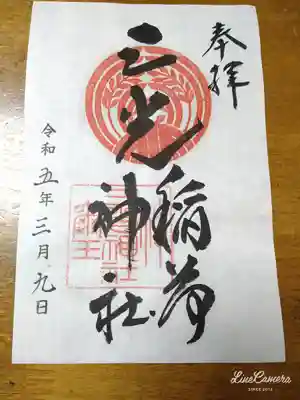 奉拝
三光稲荷
神社
令和五年三月九日
Line Camera
SINCE 2012